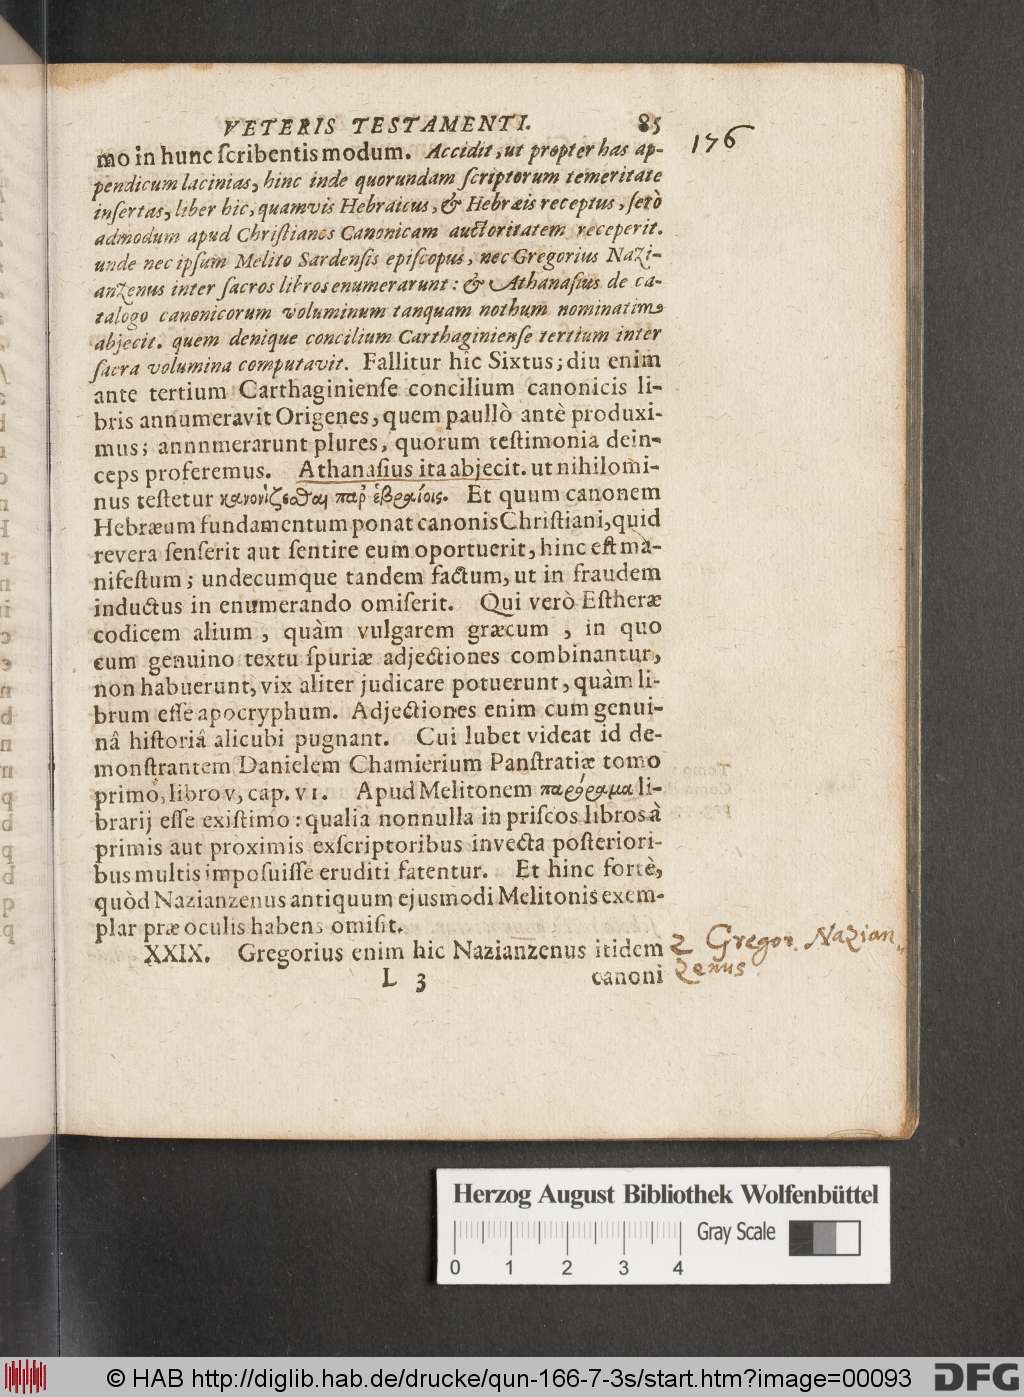 VETERIS TESTAMENTI. 85
176
mo in hunc ſcribentis modum. Accidit, ut propter has ap-
pendicum lacinias, hinc inde quorundam ſcriptorum temeritate
inſertas, liber hic, quamvis Hebraicus, & Hebræis receptus, ſerò
admodum apud Chriſtianos Canonicam auctoritatem receperit.
unde nec ipſum Melito Sardenſis epiſcopus, nec Gregorius Nazi-
anzenus inter ſacros libros enumerarunt: & Athanaſius de ca-
talogo canonicorum voluminum tanquam nothum nominatim
abjecit. quem denique concilium Carthaginienſe tertium inter
ſacra volumina computavit. Fallitur hic Sixtus; diu enim
ante tertium Carthaginienſe concilium canonicis li-
bris annumeravit Origenes, quem paullò antè produxi-
mus; annnmerarunt plures, quorum teſtimonia dein-
ceps proferemus. Athanaſius ita abjecit. ut nihilomi-
nus teſtetur κανονίζεσθαι παρ' ἑβραίοις. Et quum canonem
Hebræum fundamentum ponat canonis Chriſtiani, quid
revera ſenſerit aut ſentire eum oportuerit, hinc eſt ma-
nifeſtum; undecumque tandem factum, ut in fraudem
inductus in enumerando omiſerit. Qui verò Eſtheræ
codicem alium, quàm vulgarem græcum, in quo
cum genuino textu ſpuriæ adjectiones combinantur,
non habuerunt, vix aliter judicare potuerunt, quàm li-
brum eſſe apocryphum. Adjectiones enim cum genui-
nâ hiſtoriâ alicubi pugnant. Cui lubet videat id de-
monſtrantem Danielem Chamierium Panſtratiæ tomo
primo, libro v, cap. VI. Apud Melitonem παρόραμα li-
brarij eſſe exiſtimo: qualia nonnulla in priſcos libros à
primis aut proximis exſcriptoribus invecta poſteriori-
bus multis impoſuiſſe eruditi fatentur. Et hinc fortè,
quòd Nazianzenus antiquum ejusmodi Melitonis exem-
plar præ oculis habens omiſit.
XXIX. Gregorius enim hic Nazianzenus itidem
2 Gregor. Nazian-
zenus
L 3 canoni
Herzog August Bibliothek Wolfenbüttel
Gray Scale
0 1 2 3 4
© HAB http://diglib.hab.de/drucke/qun-166-7-3s/start.htm?image=00093
DFG